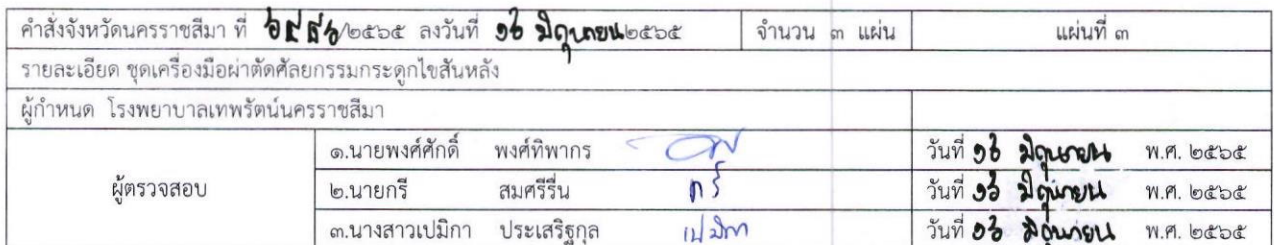 คำสั่งจังหวัดนครราชสีมา ที่ ๖๙๕๖/๒๕๖๕ ลงวันที่ ๑๖ มิถุนายน ๒๕๖๕ จำนวน ๓ แผ่น แผ่นที่ ๓
รายละเอียด ชุดเครื่องมือผ่าตัดศัลยกรรมกระดูกไขสันหลัง
ผู้กำหนด โรงพยาบาลเทพรัตน์นครราชสีมา
ผู้ตรวจสอบ
๑.นายพงศ์ศักดิ์ พงศ์ทิพากร วันที่ ๑๖ มิถุนายน พ.ศ. ๒๕๖๕
๒.นายกรี สมศรีรื่น กรี วันที่ ๑๖ มิถุนายน พ.ศ. ๒๕๖๕
๓.นางสาวเปมิกา ประเสริฐกุล เปมิกา วันที่ ๑๖ มิถุนายน พ.ศ. ๒๕๖๕